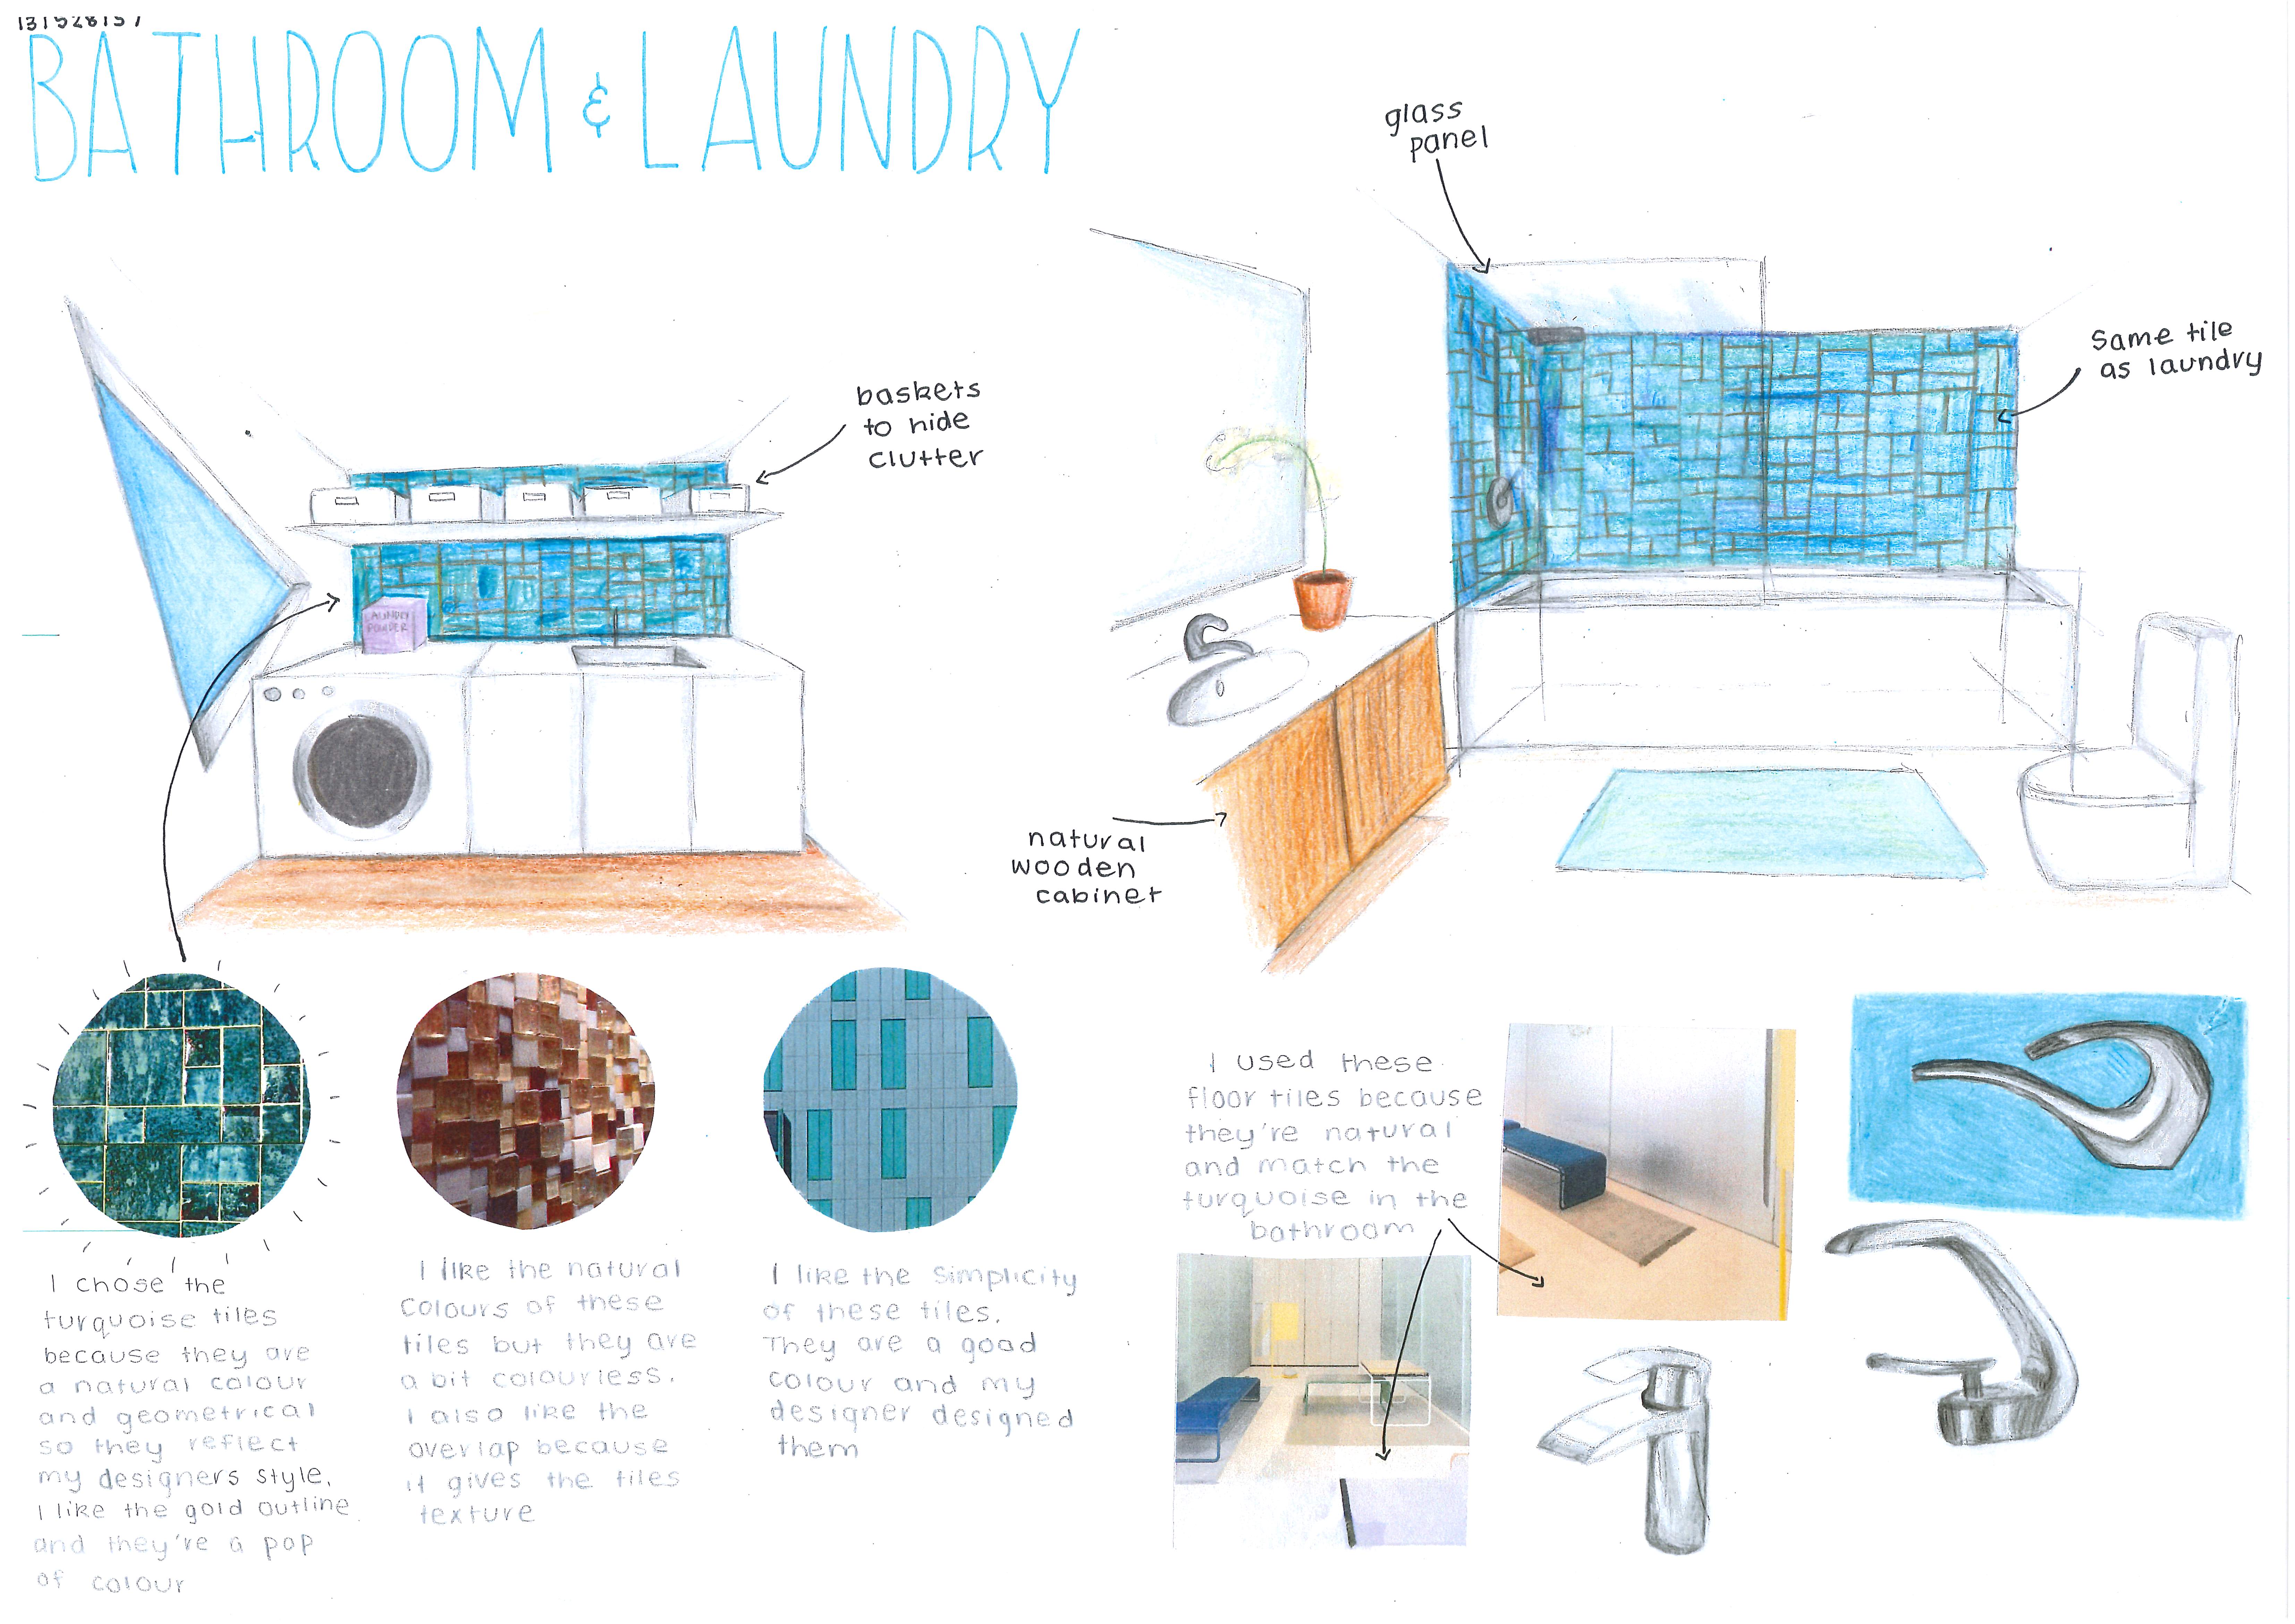 BATHROOM & LAUNDRY
glass
panel
Same tile
as laundry
baskets
to hide
clutter
LAUNDRY
POWDER
natural
wooden
cabinet
I chose the
turquoise tiles
because they are
a natural colour
and geometrical
so they reflect
my designers style.
I like the gold outline
and they're a pop
of colour
I like the natural
colours of these
tiles but they are
a bit colourless.
I also like the
overlap because
it gives the tiles
texture
I like the simplicity
of these tiles.
They are a good
colour and my
designer designed
them
I used these
floor tiles because
they're natural
and match the
turquoise in the
bathroom